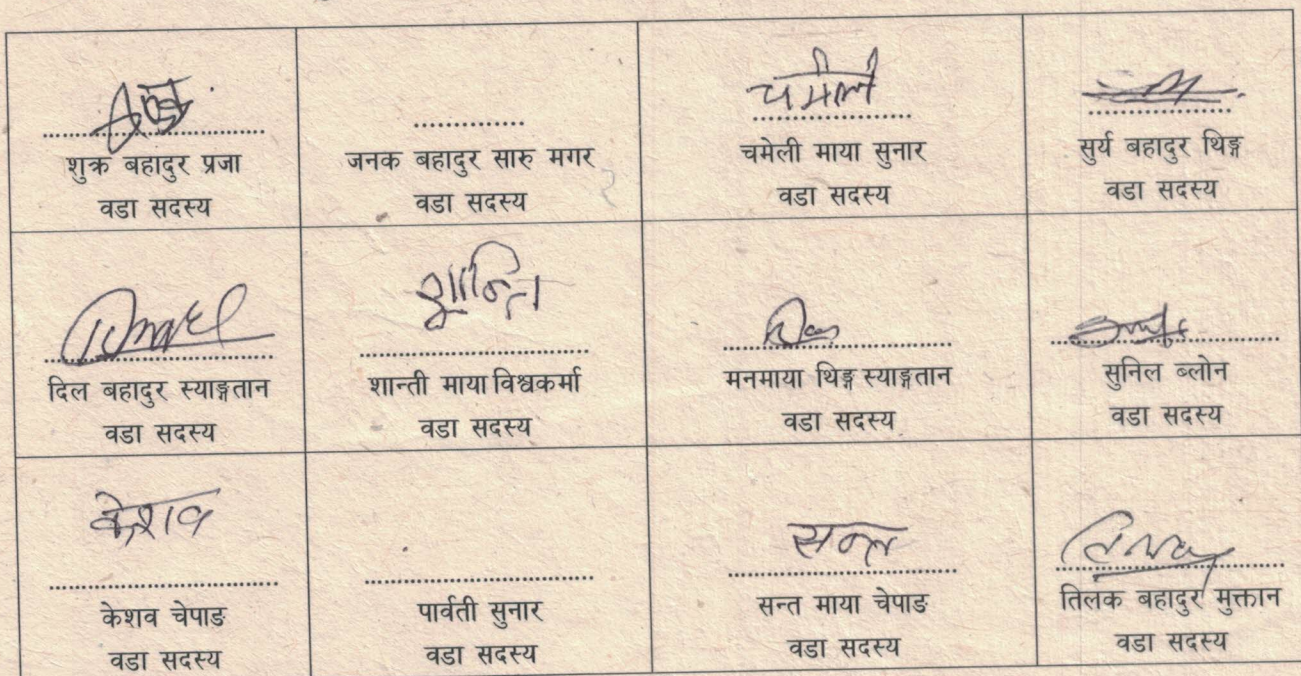 चमेली
शुक्र बहादुर प्रजा
वडा सदस्य
जनक बहादुर सारु मगर
वडा सदस्य
चमेली माया सुनार
वडा सदस्य
सुर्य बहादुर थिङ्ग
वडा सदस्य
शान्ति
दिल बहादुर स्याङ्गतान
वडा सदस्य
शान्ती माया विश्वकर्मा
वडा सदस्य
मनमाया थिङ्ग स्याङ्गतान
वडा सदस्य
सुनिल ब्लोन
वडा सदस्य
केशव
केशव चेपाङ
वडा सदस्य
पार्वती सुनार
वडा सदस्य
सन्त
सन्त माया चेपाङ
वडा सदस्य
तिलक बहादुर मुक्तान
वडा सदस्य